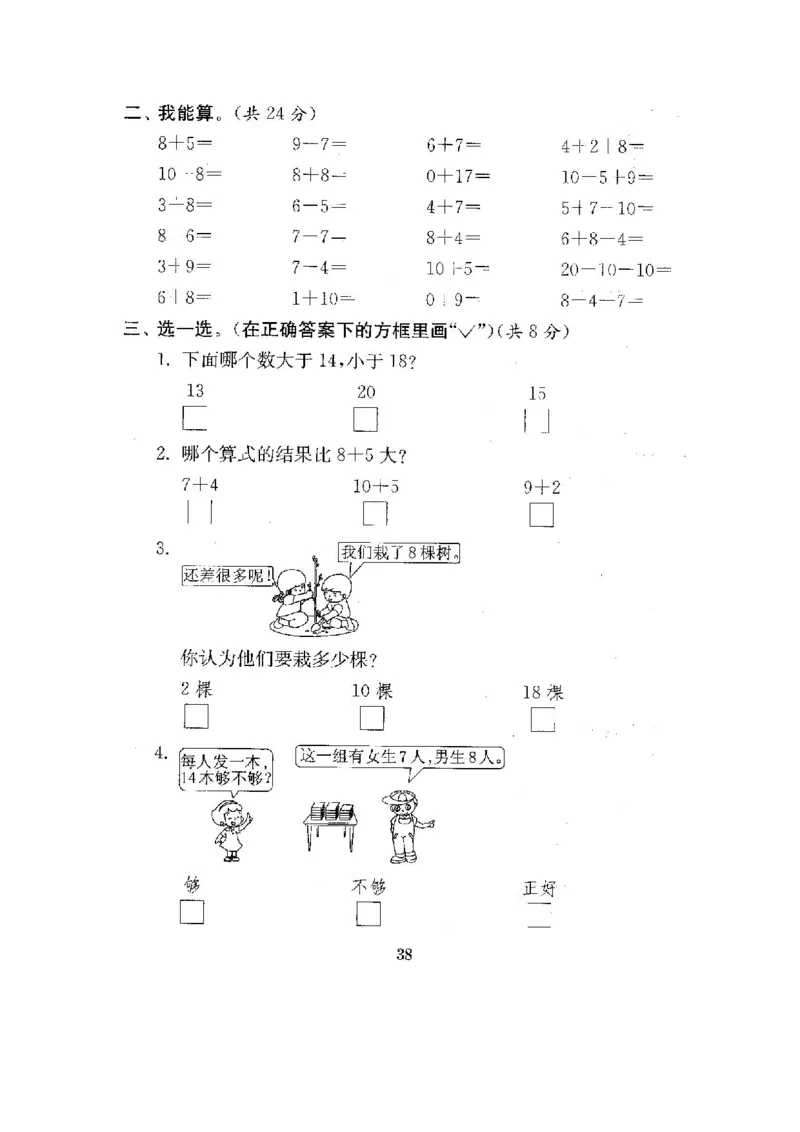 二、我能算。(共 24 分)
8+5= 9-7= 6+7= 4+2+8=
10-8= 8+8= 0+17= 10-5+9=
3+8= 6-5= 4+7= 5+7-10=
8-6= 7-7= 8+4= 6+8-4=
3+9= 7-4= 10+5= 20-10-10=
6+8= 1+10= 0+9= 8-4-7=
三、选一选。(在正确答案下的方框里画“✓”)(共 8 分)
1. 下面哪个数大于 14,小于 18?
13 20 15
2. 哪个算式的结果比 8+5 大?
7+4 10+5 9+2
3.
我们栽了 8 棵树。
还差很多呢!
你认为他们要栽多少棵?
2 棵 10 棵 18 棵
4.
每人发一本,
14本够不够?
这一组有女生7人,男生8人。
够 不够 正好
38